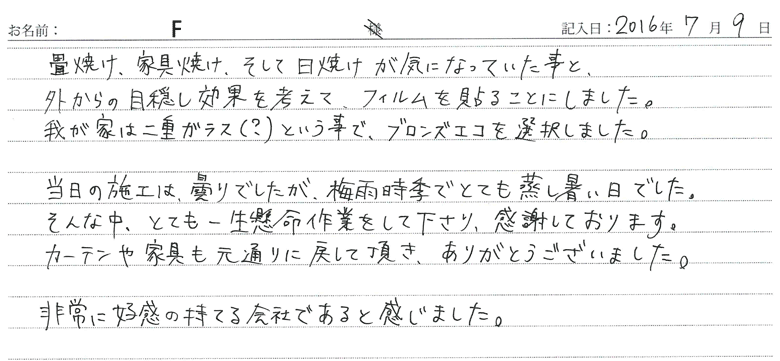 お名前： F 様 記入日：2016年 7月 9日
畳焼け、家具焼け、そして日焼けが気になっていた事と、
外からの目隠し効果を考えて、フィルムを貼ることにしました。
我が家は二重ガラス(?)という事で、ブロンズエコを選択しました。
当日の施工は、曇りでしたが、梅雨時季でとても蒸し暑い日でした。
そんな中、とても一生懸命作業をして下さり、感謝しております。
カーテンや家具も元通りに戻して頂き、ありがとうございました。
非常に好感の持てる会社であると感じました。